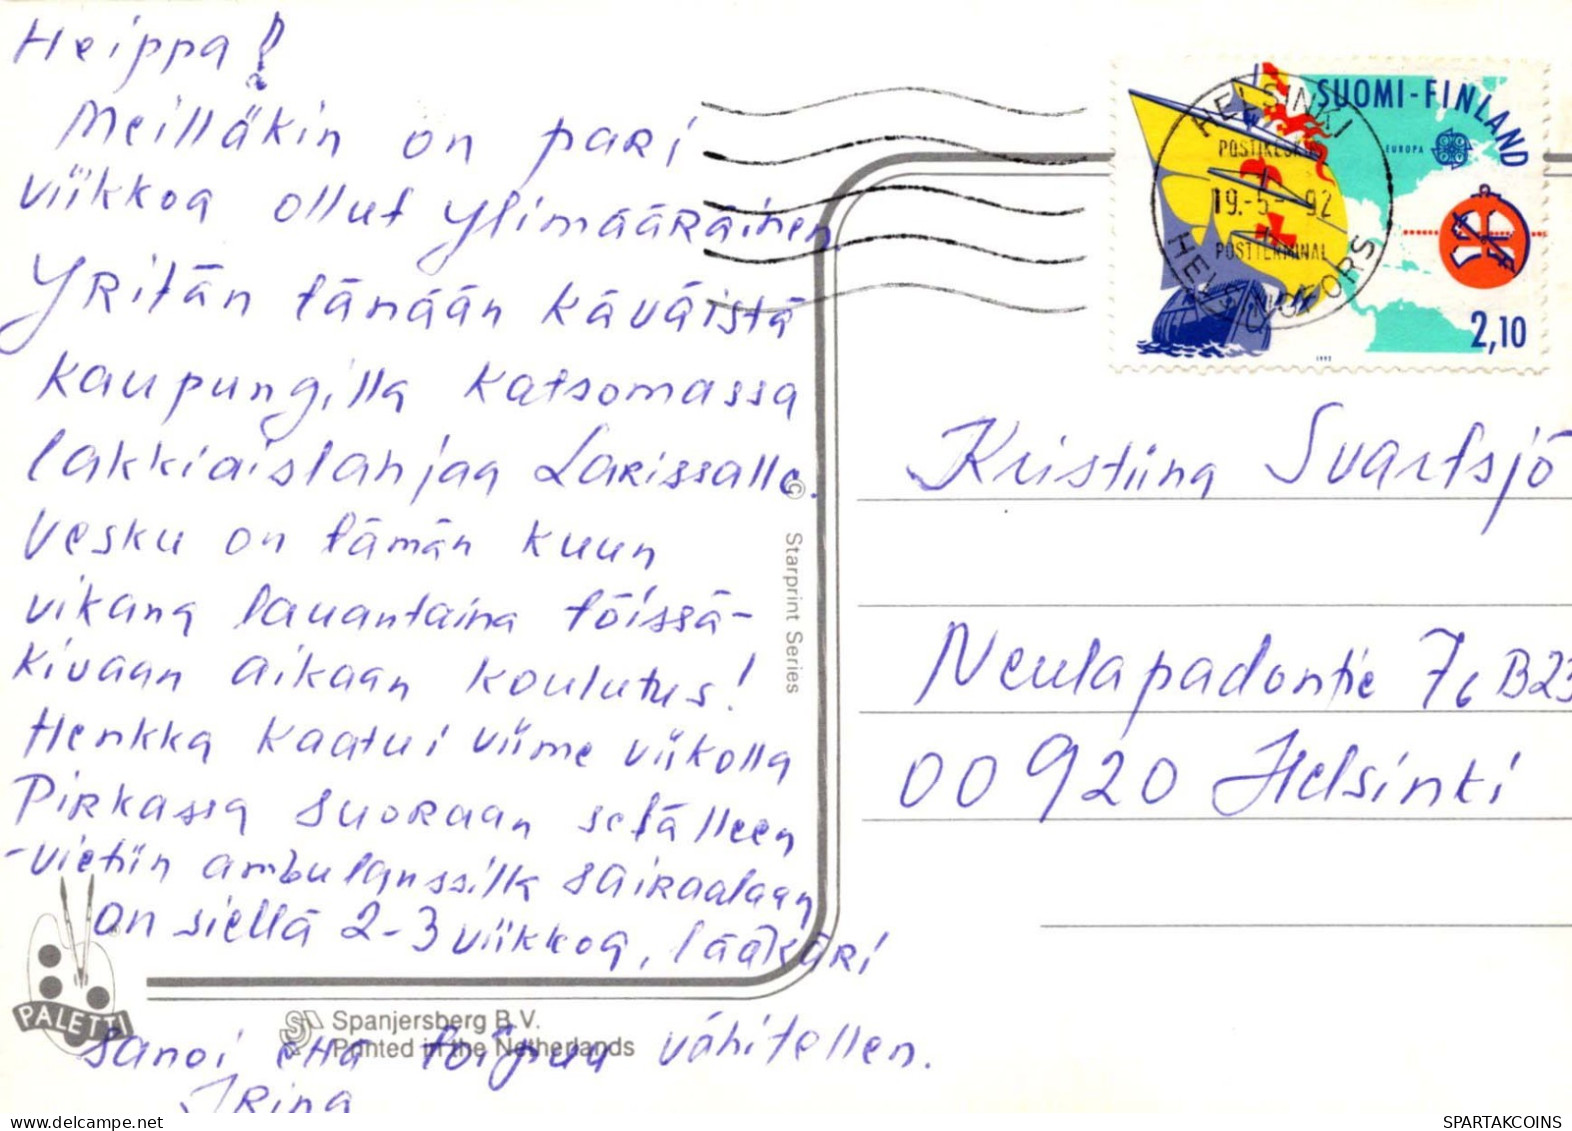 Heippa!
Meilläkin on pari
viikkoa ollut ylimääräinen
Yritän tänään käväistä
kaupungilla katsomassa
lakkiaislahjaa Larissalle.
Vesku on tämän kuun
vikana lauantaina töissä-
Kivaan aikaan koulutus!
Henkka kaatui viime viikolla
Pirkassa suoraan selälleen
-vietiin ambulanssilla sairaalaan
on siellä 2-3 viikkoa, lääkäri
sanoi että toipuu vähitellen.
Irina
PALETTI
Spanjersberg B.V.
Printed in the Netherlands
© Starprint Series
SUOMI-FINLAND
EUROPA
2,10
1992
HELSINKI
POSTIKESKUS
19.-5-92
POSTTERMINAL
HELSINGFORS
Kristiina Svartsjö
Neulapadontie 7c B23
00920 Helsinki
delcampe.net
SPARTAKCOINS